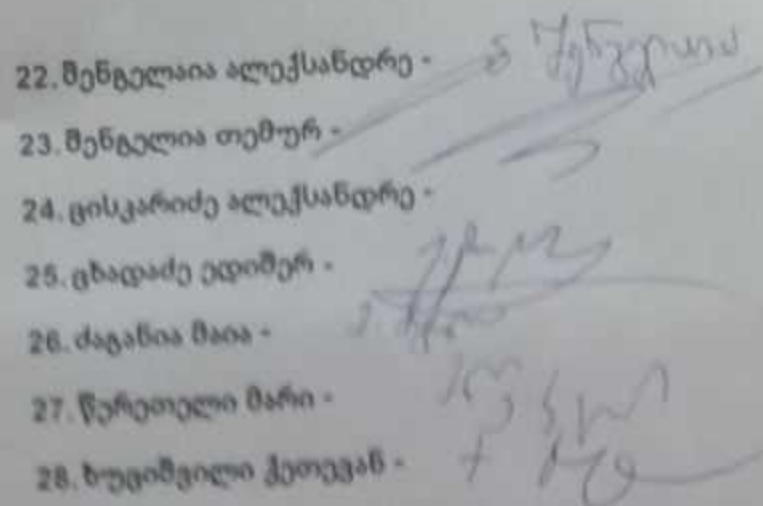 22. შენგელაია ალექსანდრე -
23. შენგელია თემურ -
24. ცისკარიძე ალექსანდრე -
25. ცხადაძე ედიშერ -
26. ძაგანია მაია -
27. წერეთელი მარი -
28. ხუციშვილი ქეთევან -